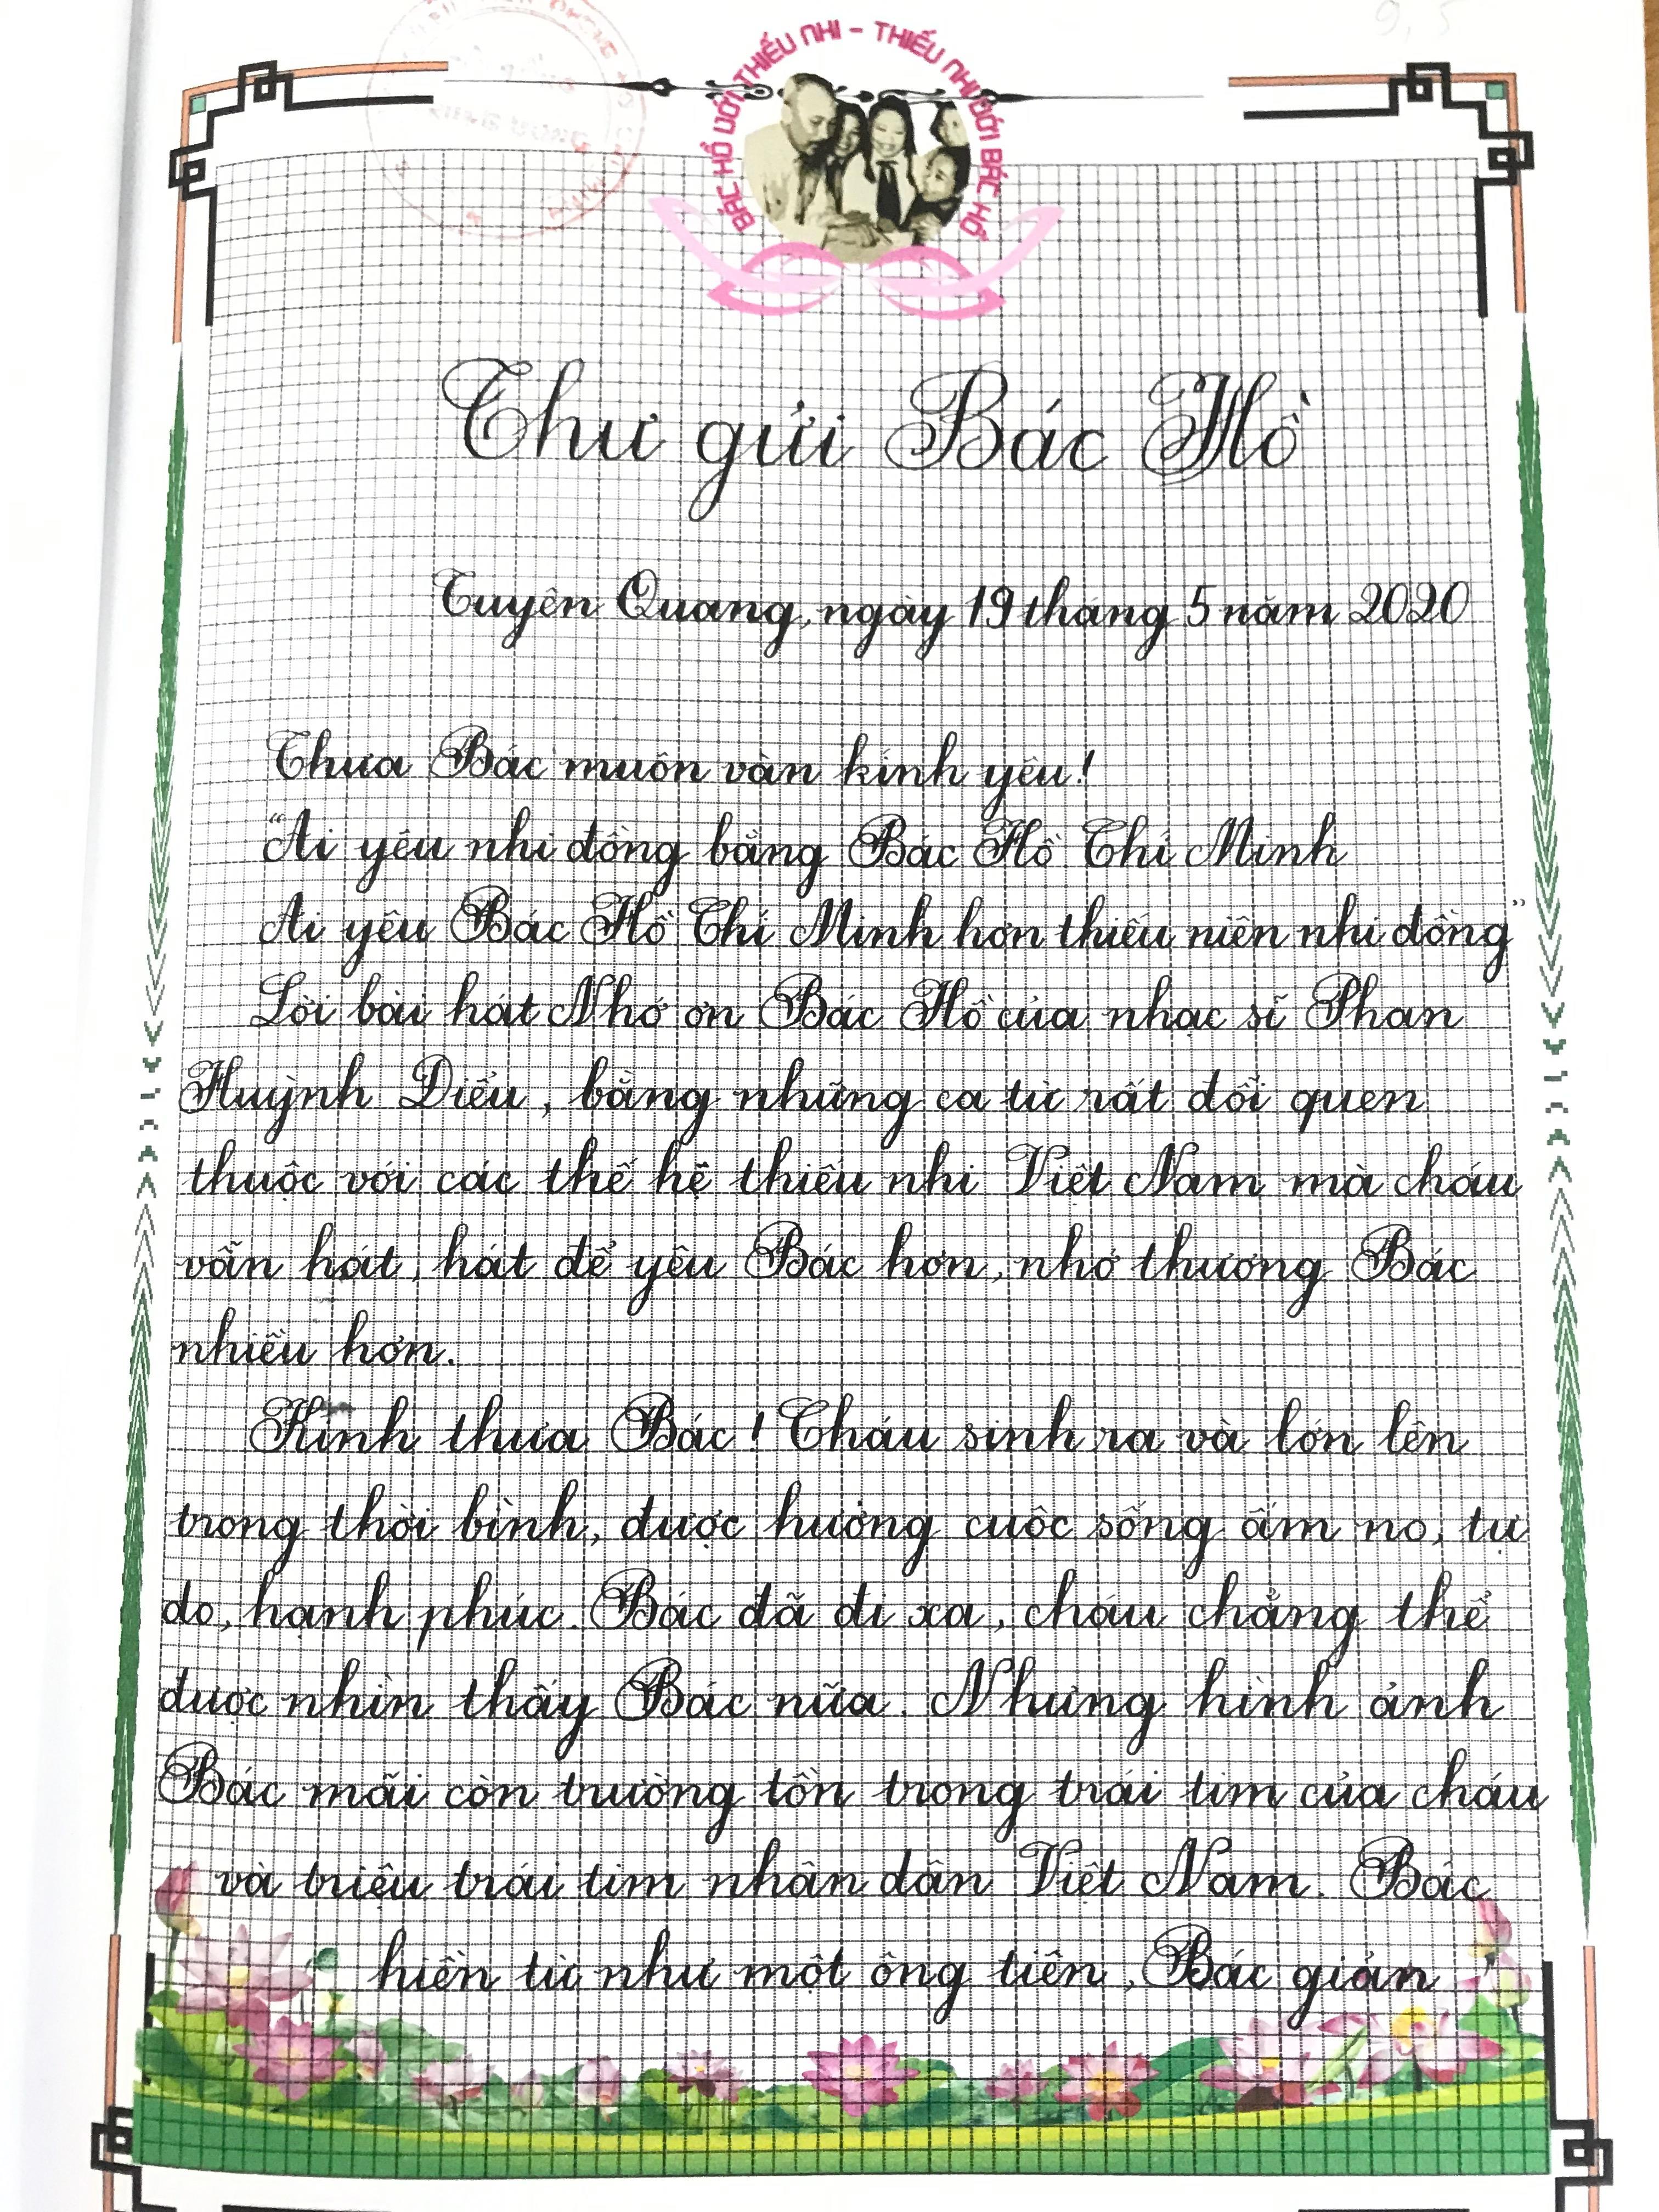 9,5
BÁC HỒ VỚI THIẾU NHI - THIẾU NHI VỚI BÁC HỒ
Thư gửi Bác Hồ
Tuyên Quang, ngày 19 tháng 5 năm 2020
Thưa Bác muôn vàn kính yêu!
"Ai yêu nhi đồng bằng Bác Hồ Chí Minh
Ai yêu Bác Hồ Chí Minh hơn thiếu niên nhi đồng"
Lời bài hát Nhớ ơn Bác Hồ của nhạc sĩ Phan
Huỳnh Diểu, bằng những ca từ rất đỗi quen
thuộc với các thế hệ thiếu nhi Việt Nam mà cháu
vẫn hát, hát để yêu Bác hơn, nhớ thương Bác
nhiều hơn.
Kính thưa Bác! Cháu sinh ra và lớn lên
trong thời bình, được hưởng cuộc sống ấm no, tự
do, hạnh phúc. Bác đã đi xa, cháu chẳng thể
được nhìn thấy Bác nữa. Nhưng hình ảnh
Bác mãi còn trường tồn trong trái tim của cháu
và triệu trái tim nhân dân Việt Nam. Bác
hiền từ như một ông tiên, Bác giản